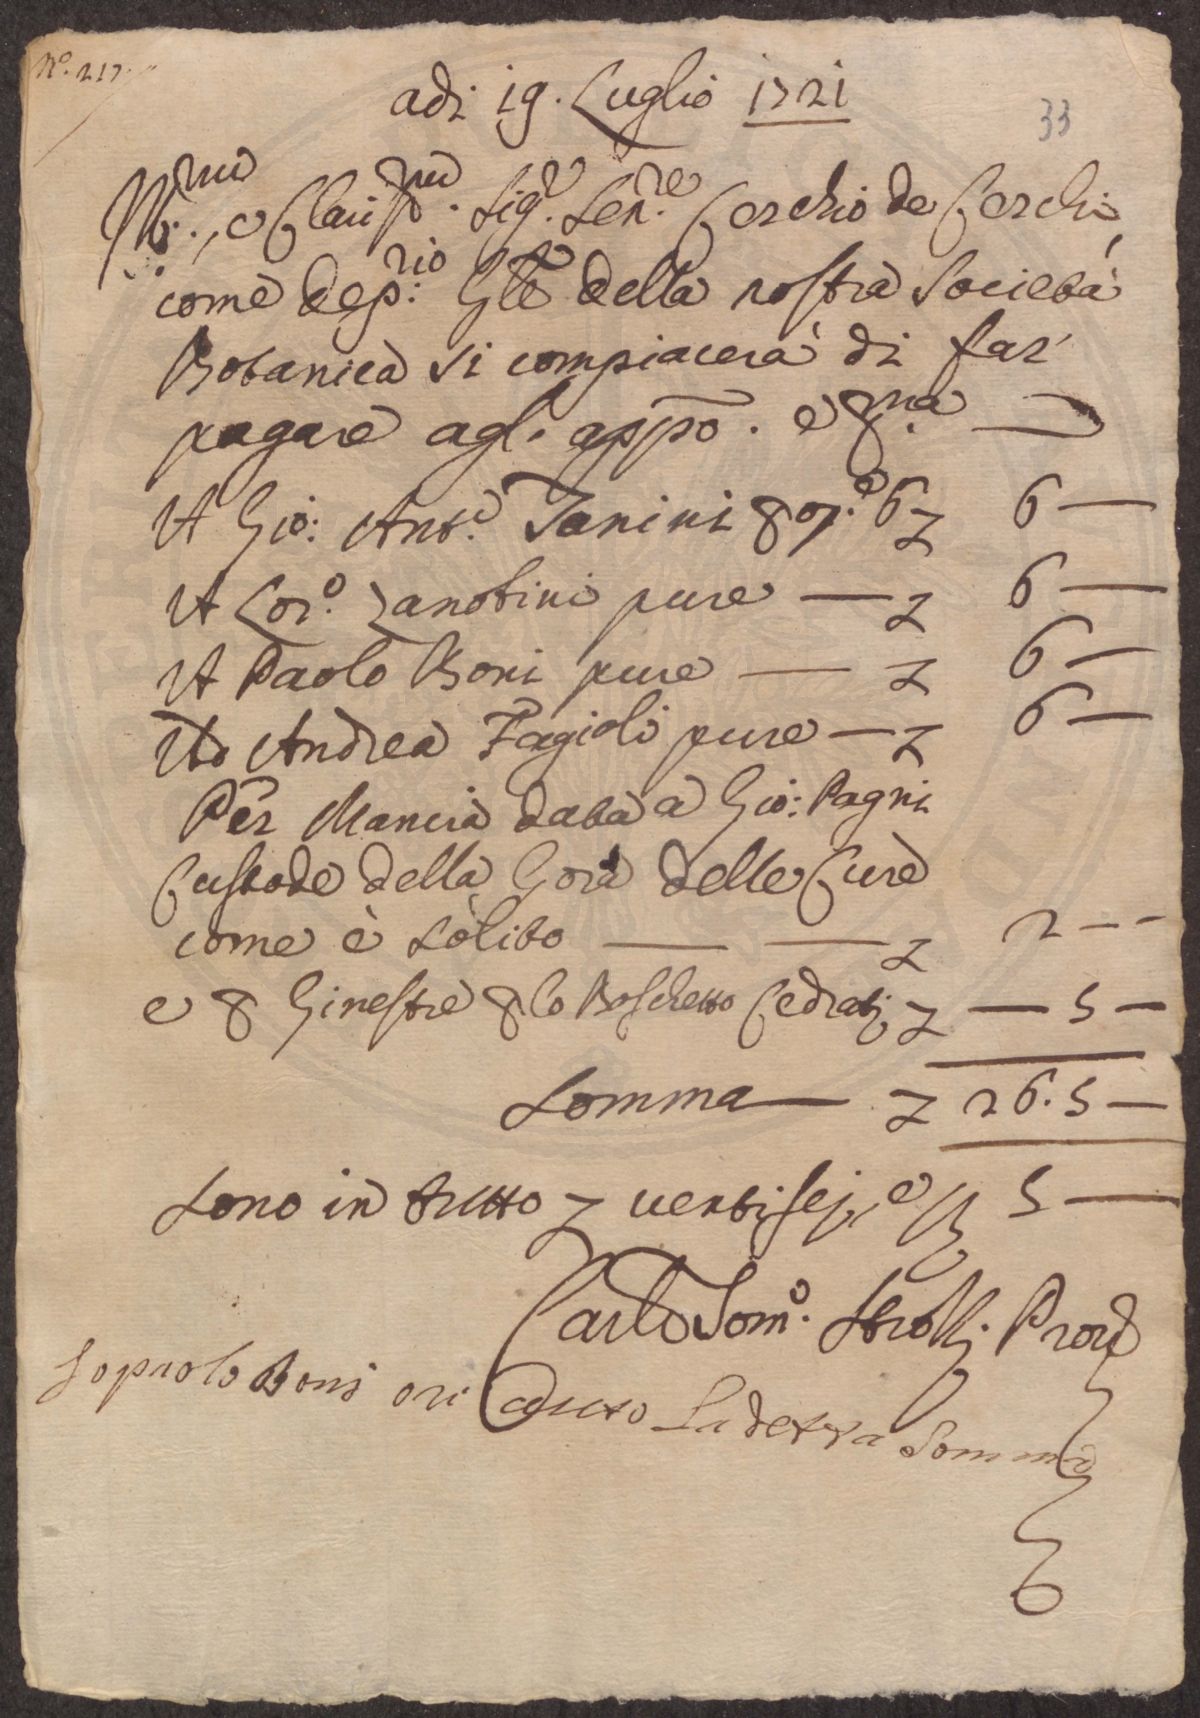 N.º 217.
adi 19. Luglio 1721
33
Ill.mo, e Clariss.mo Sig.r Sen.re Cerchio de Cerchi,
come dep.rio Gle della nostra Società
Botanica si compiacerà di far
pagare agl. appo. e p.ma
A Gio: Ant.o Tanini p op.e 6 £ 6 —
A Lor.o Zanobini pure — £ 6 —
A Paolo Boni pure — £ 6 —
Ad Andrea Fagioli pure — £ 6 —
Per Mancia data a Gio: Pagni
Custode della Gora delle Cure
come è sòlito — — £ 2 - -
e p Ginestre p lo Boschetto Cedratj £ — 5 —
Somma — £ 26. 5 —
Sono in tutto £ ventisej, e ß 5 —
Carlo Tom.o Strozzj Prov
Io paolo Boni o ri ceuto La detta Somma